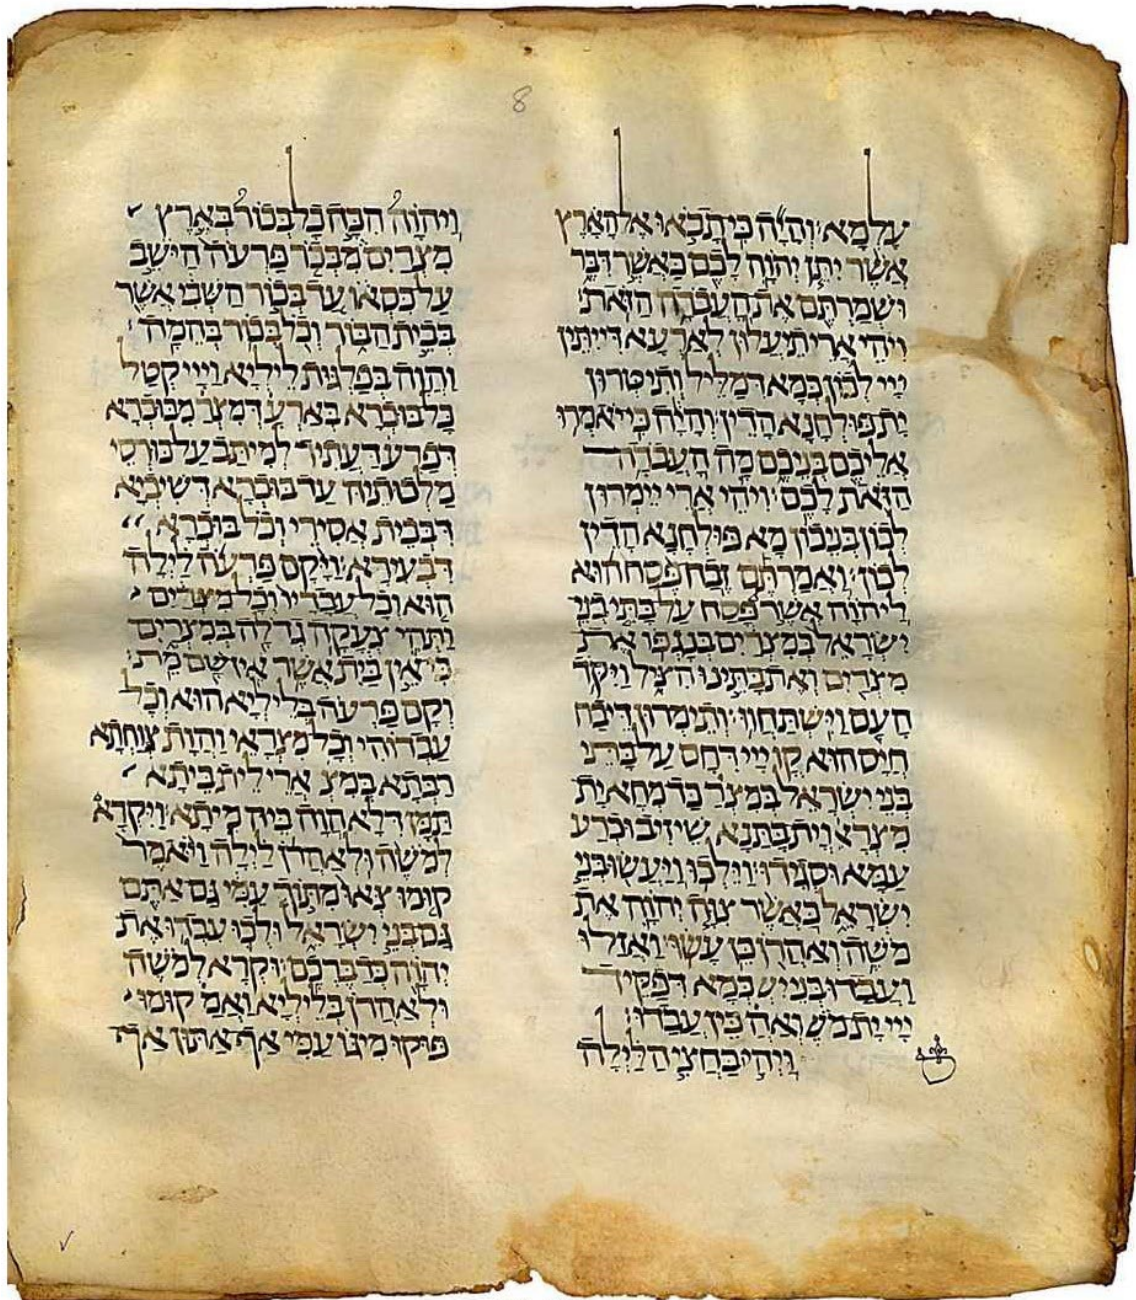 8
עלמא והיה כי תבאו אל הארץ
אשר יתן יהוה לכם כאשר דבר
ושמרתם את העבדה הזאת
ויהי ארי תיעלון לארעא דייתין
ייי לכון כמא דמליל ותיטרון
ית פולחנא הדין והיה כי יאמרו
אליכם בניכם מה העבדה
הזאת לכם ויהי ארי יימרון
לכון בניכון מא פולחנא הדין
לכון ואמרתם זבח פסח הוא
ליהוה אשר פסח על בתי בני
ישראל במצרים בנגפו את
מצרים ואת בתינו הציל ויקד
העם וישתחוו ותימרון דיבח
חייס הוא קן ייי דחם על בתי
בני ישראל במצר כד מחא ית
מצרא וית בתנא שיזיב וכרע
עמא וסגידו וילכו ויעשו בני
ישראל כאשר צוה יהוה את
משה ואהרן כן עשו ואזלו
ועבדו בני יש כמא דפקיד
ייי ית מש ואה כין עבדו
ויהי בחצי הלילה
ויהוה הכה כל בכור בארץ
מצרים מבכר פרעה הישב
על כסאו עד בכור השבי אשר
בבית הבור וכל בכור בהמה
והוה בפלגות ליליא וייי קטל
כל בוכרא בארע דמצר מבוכרא
דפרע דעתיד למיתב על כורסי
מלכותיה עד בוכרא דשיביא
דבבית אסירי וכל בוכרא
דבעירא ויקם פרעה לילה
הוא וכל עבדיו וכל מצרים
ותהי צעקה גדלה במצרים
כי אין בית אשר אין שם מת
וקם פרעה בליליא הוא וכל
עבדוהי וכל מצראי והות צוחתא
רבתא במצ ארי לית ביתא
תמן דלא הוה ביה מיתא ויקרא
למשה ולאהרן לילה ויאמר
קומו צאו מתוך עמי גם אתם
גם בני ישראל ולכו עבדו את
יהוה כדברכם וקרא למשה
ולאהרן בליליא ואמ קומו
פוקו מיגו עמי אף אתון אף